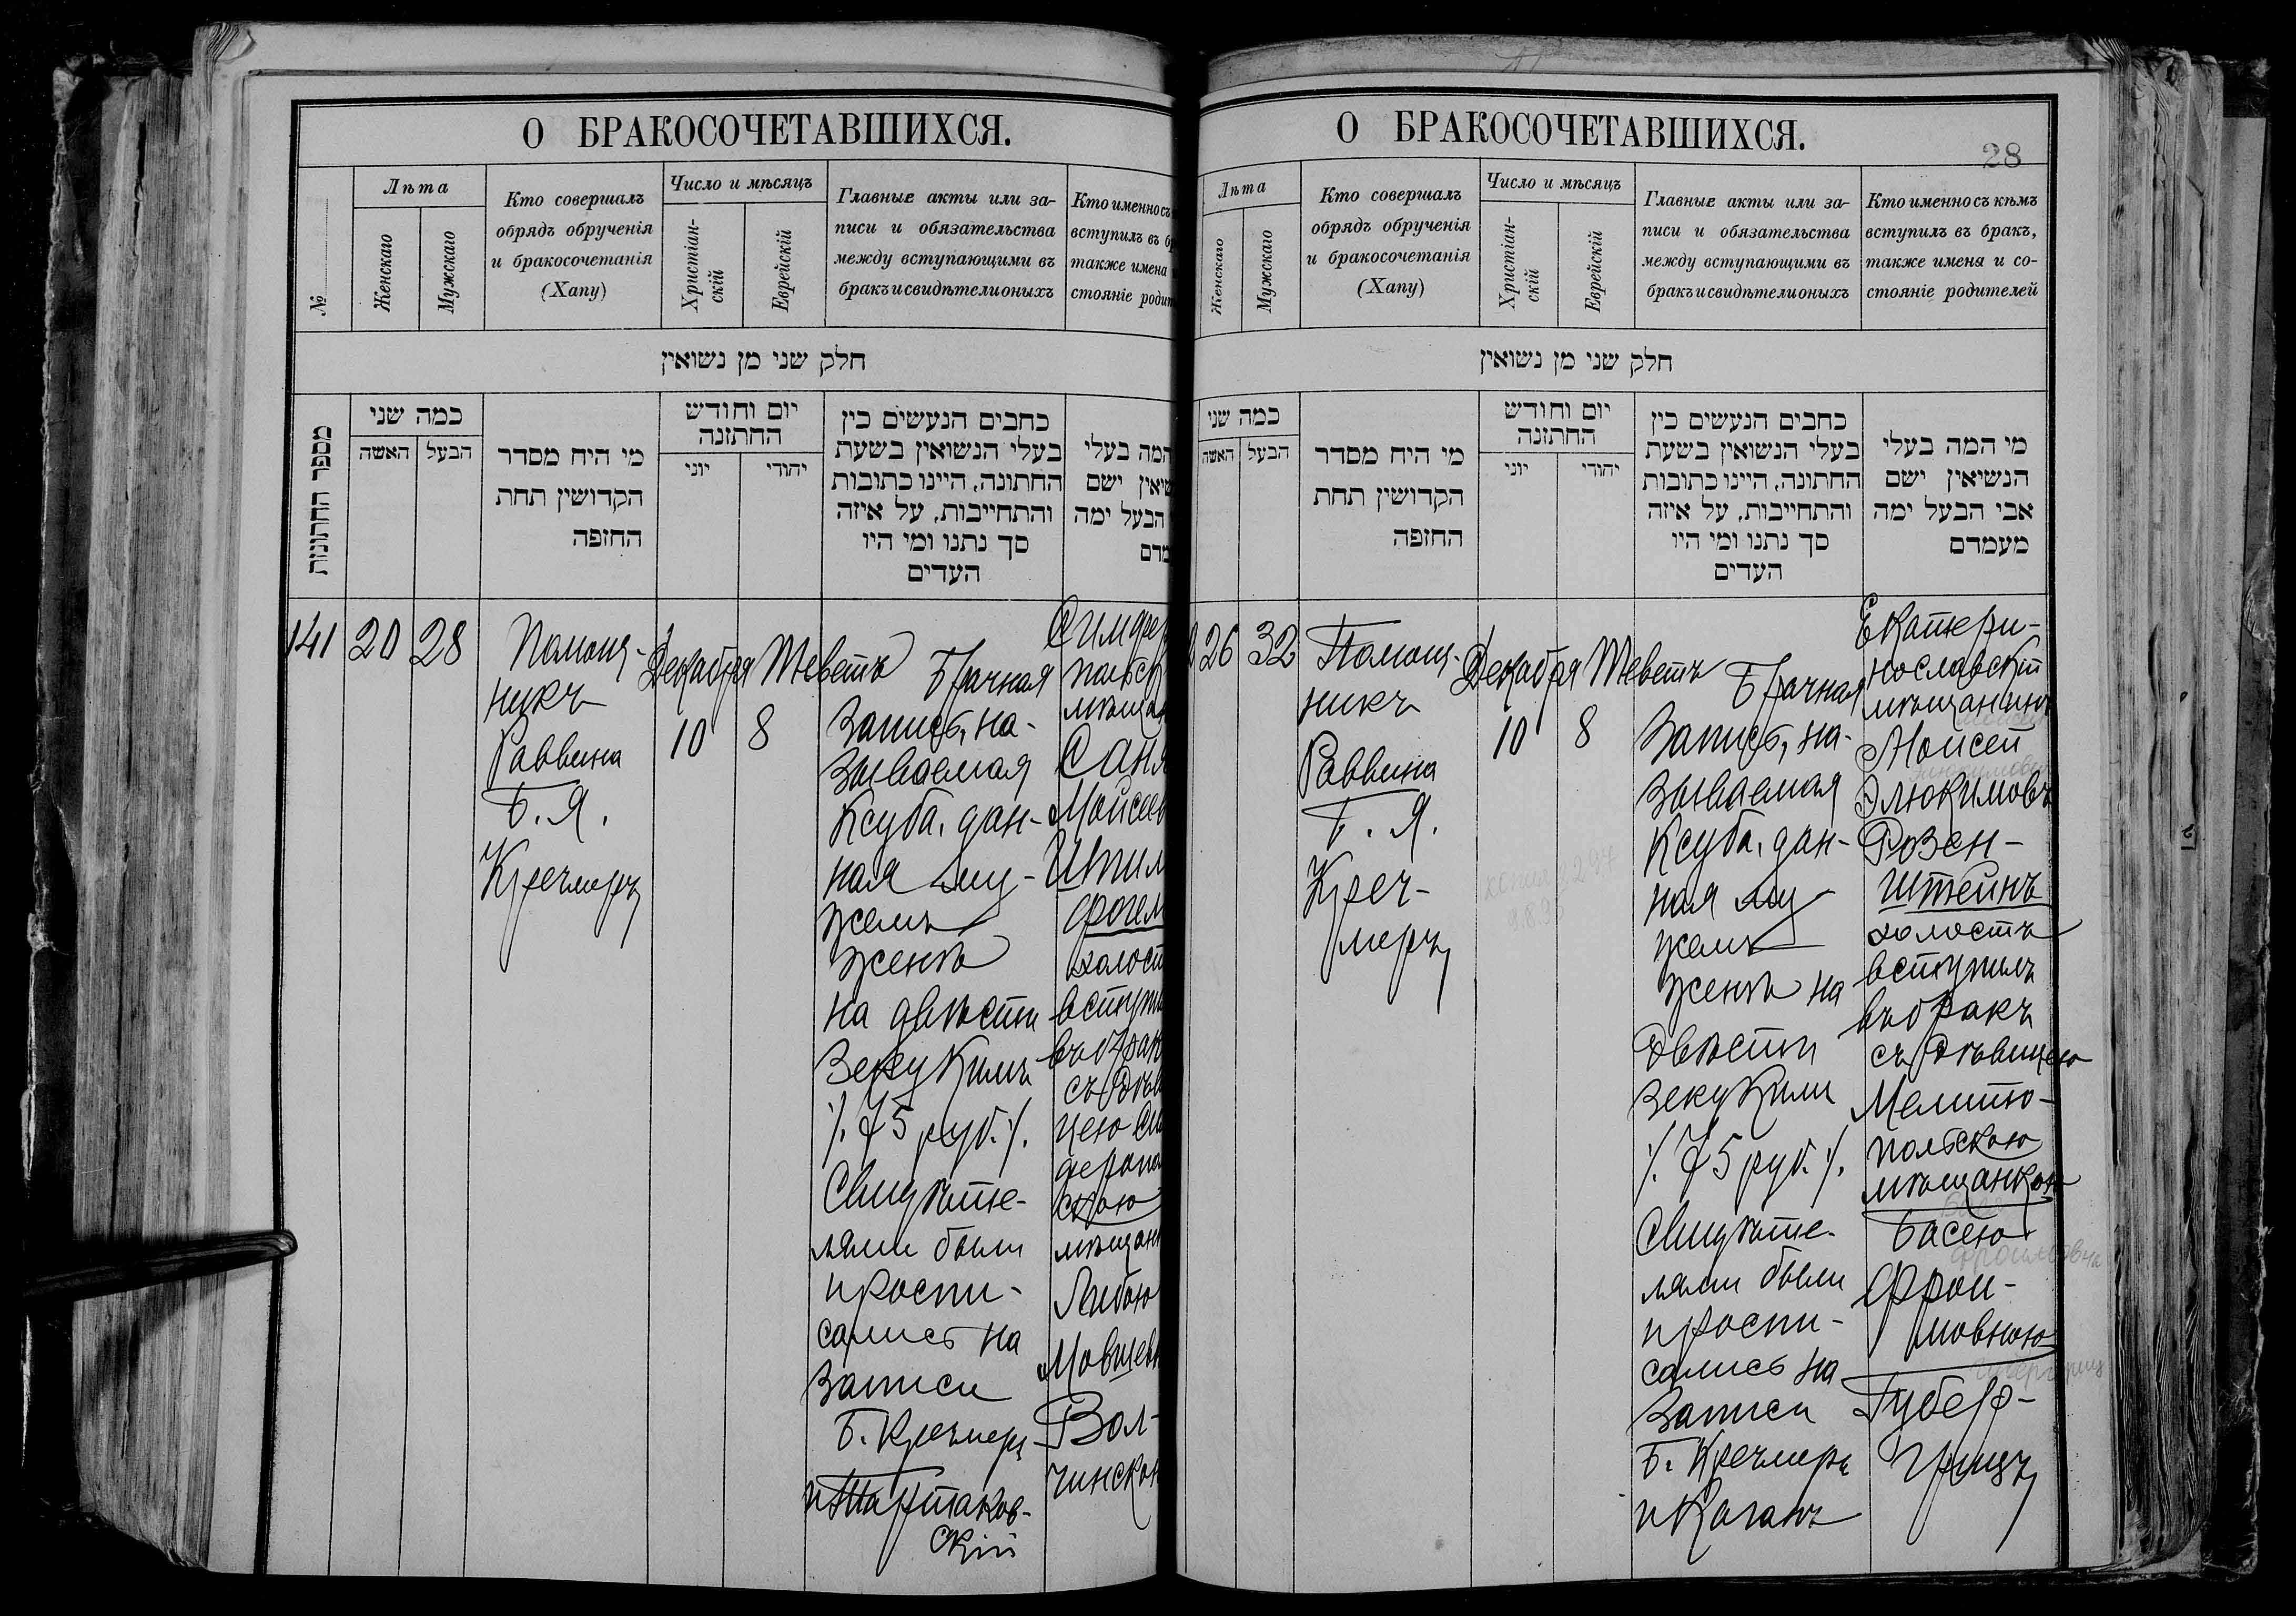 О БРАКОСОЧЕТАВШИХСЯ.
№
Лѣта
Женскаго
Мужскаго
Кто совершалъ
обрядъ обрученія
и бракосочетанія
(Хапу)
Число и мѣсяцъ
Христіан-
скій
Еврейскій
Главные акты или за-
писи и обязательства
между вступающими въ
бракъ и свидѣтели оныхъ
Кто именно съ
вступилъ въ б
также имена
стояніе роди
חלק שני מן נשואין
מספר החתונות
כמה שני
האשה
הבעל
מי היח מסדר
הקדושין תחת
החופה
יום וחודש
החתונה
יוני
יהודי
כתבים הנעשים בין
בעלי הנשואין בשעת
החתונה, היינו כתובות
והתחייבות, על איזה
סך נתנו ומי היו
העדים
המה בעלי
שואין ישם
הבעל ימה
מדם
141
20
28
Помощ-
никъ
Раввина
Б. Я.
Кречмеръ
Декабря
10
Теветъ
8
Брачная
Запись, на-
зываемая
Ксуба, дан-
ная му-
жемъ
женѣ
на двѣсти
Зекукимъ
/. 75 руб. /.
Свидѣте-
лями были
и роспи-
сались на
Записи
Б. Кречмеръ
и Тартаков-
скій
Симфер
польск
мѣщан
Саня
Мойсеев
Шпил
фогел
холост
вступи
въ брак
съ Дѣв
цею Си
феропо
скою
мѣщан
Либою
Мовшев
Вол-
чинскою
О БРАКОСОЧЕТАВШИХСЯ.
28
Лѣта
Женскаго
Мужскаго
Кто совершалъ
обрядъ обрученія
и бракосочетанія
(Хапу)
Число и мѣсяцъ
Христіан-
скій
Еврейскій
Главные акты или за-
писи и обязательства
между вступающими въ
бракъ и свидѣтели оныхъ
Кто именно съ кѣмъ
вступилъ въ бракъ,
также имена и со-
стояніе родителей
חלק שני מן נשואין
כמה שני
האשה
הבעל
מי היח מסדר
הקדושין תחת
החופה
יום וחודש
החתונה
יוני
יהודי
כתבים הנעשים בין
בעלי הנשואין בשעת
החתונה, היינו כתובות
והתחייבות, על איזה
סך נתנו ומי היו
העדים
מי המה בעלי
הנשיאין ישם
אבי הבעל ימה
מעמדם
26
32
Помощ-
никъ
Раввина
Б. Я.
Креч-
меръ
Декабря
10
Теветъ
8
Брачная
Запись, на-
зываемая
Ксуба, дан-
ная му-
жемъ
женѣ на
Двѣсти
зекуким
/. 75 руб. /.
Свидѣте-
лями были
и роспи-
сались на
Записи
Б. Кречмеръ
и Каганъ
Екатери-
нославскій
мѣщанинъ
Мойсей
Элюкимовъ
Розен-
штейнъ
холостъ
вступилъ
въ бракъ
съ Дѣвицею
Мелито-
польскою
мѣщанкою
Басею
Фрои-
мовною
Губер-
грицъ